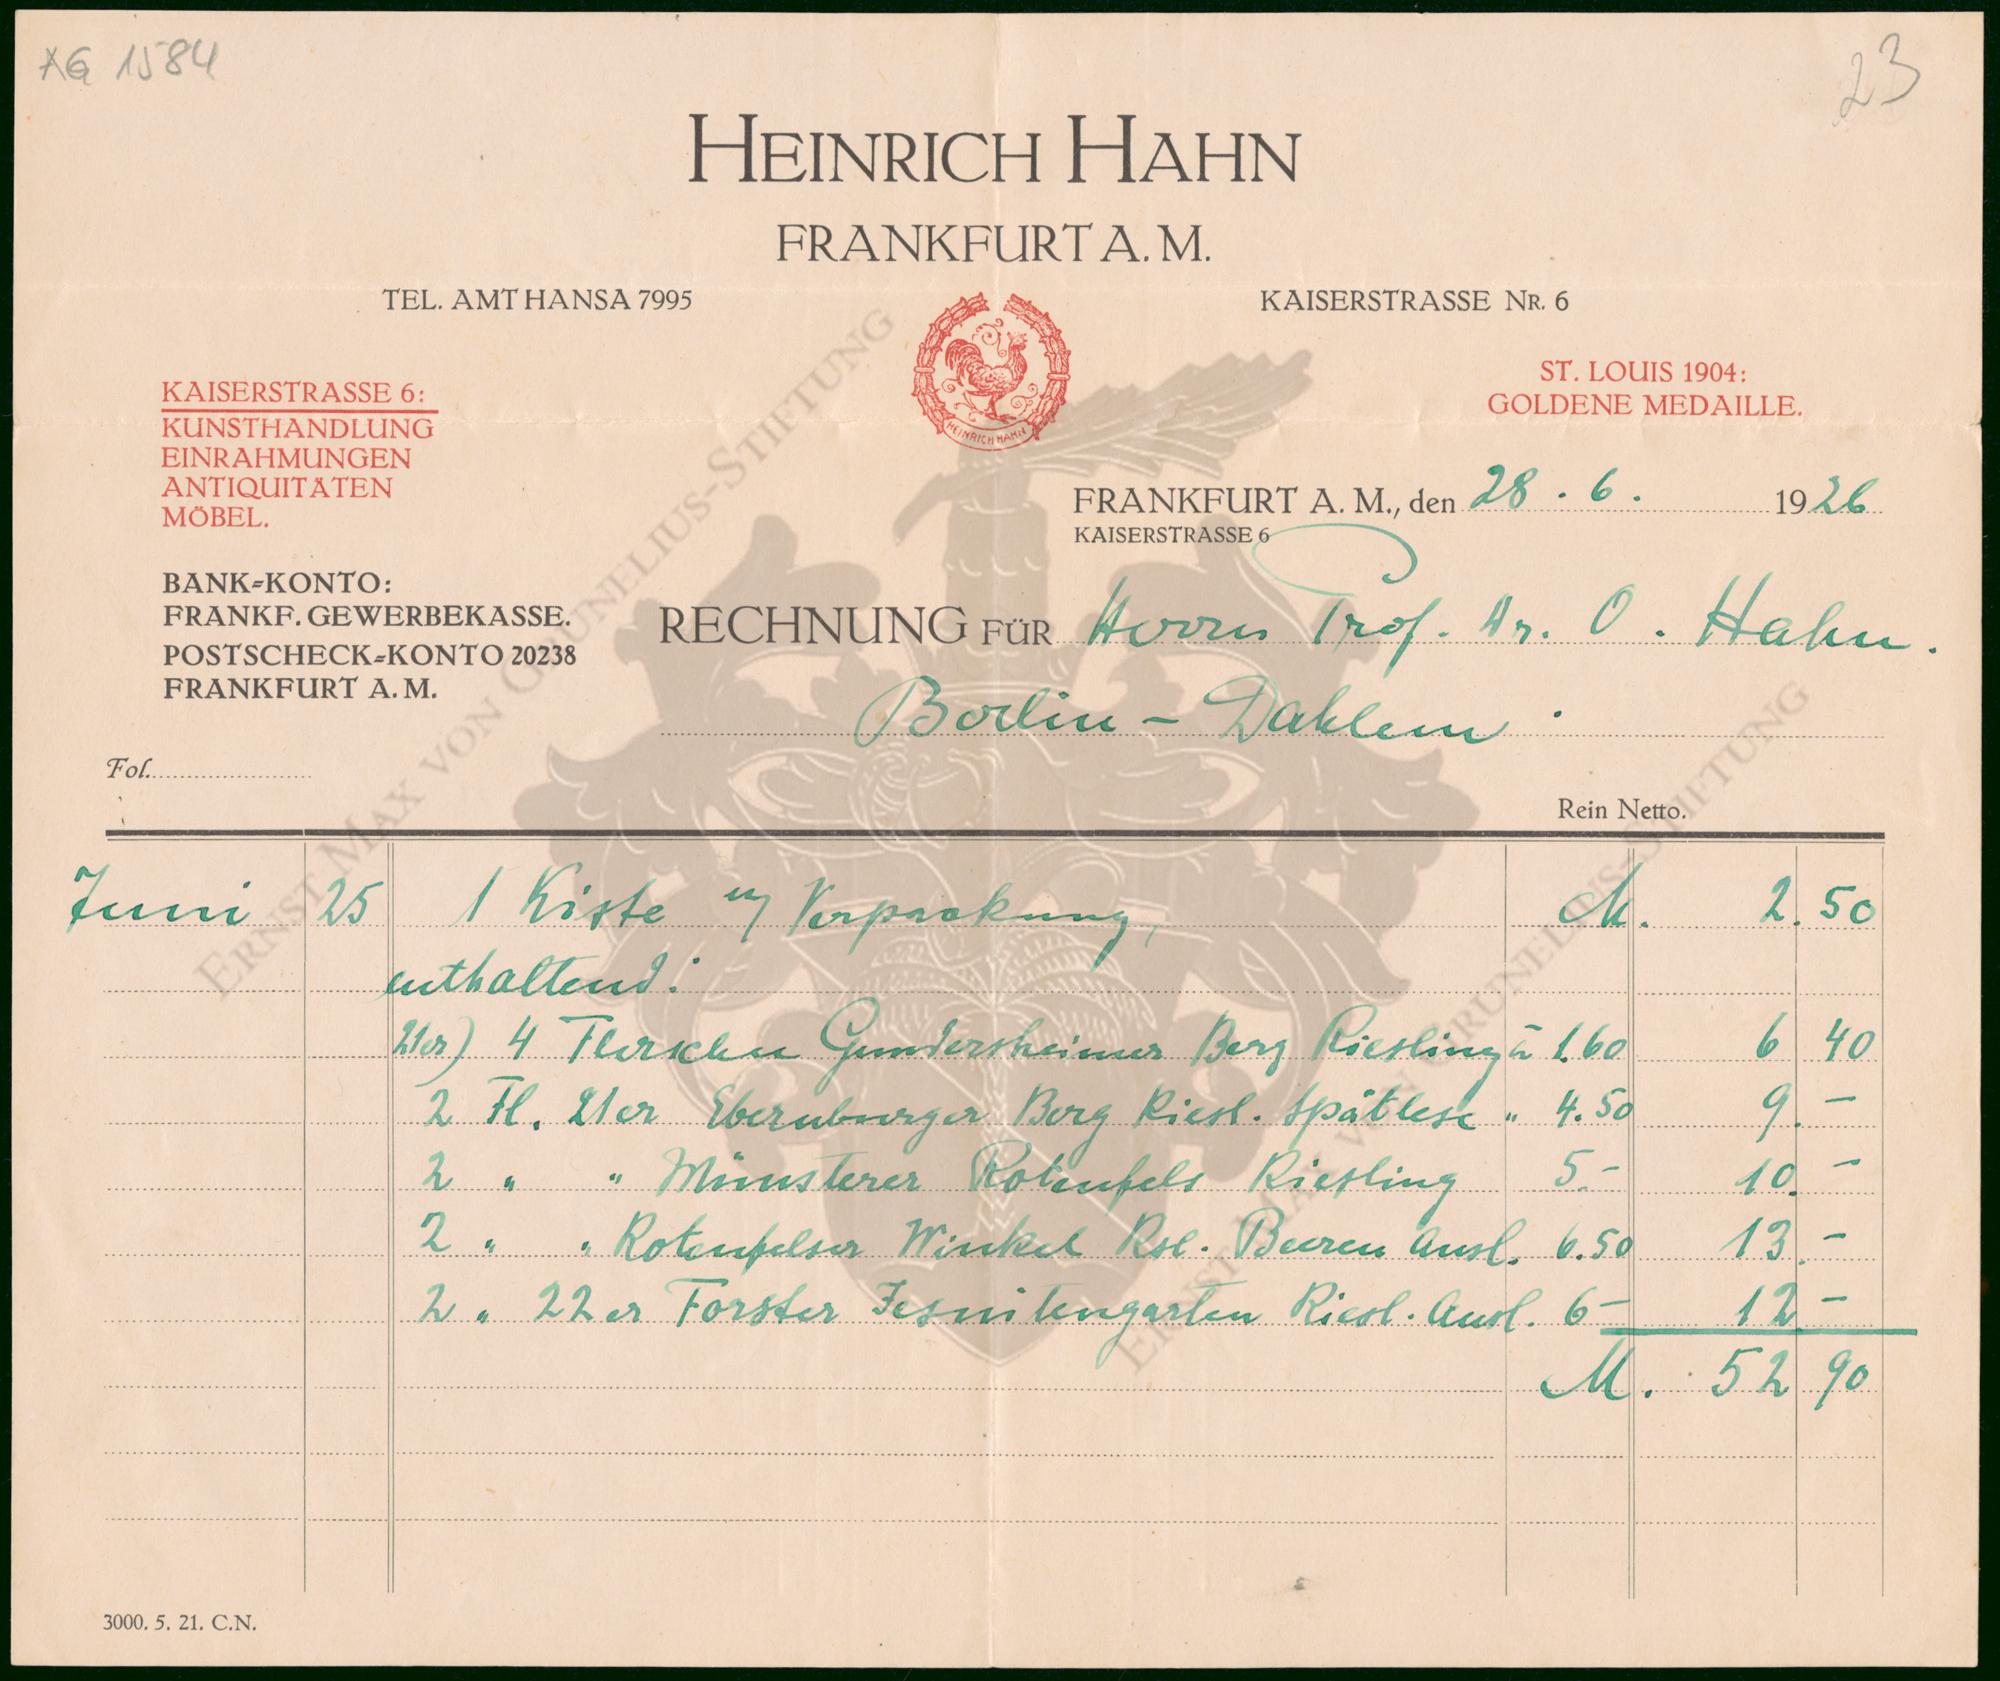 AG 1584
23
HEINRICH HAHN
FRANKFURT A. M.
TEL. AMT HANSA 7995
KAISERSTRASSE NR. 6
HEINRICH HAHN
KAISERSTRASSE 6:
KUNSTHANDLUNG
EINRAHMUNGEN
ANTIQUITÄTEN
MÖBEL.
ST. LOUIS 1904:
GOLDENE MEDAILLE.
FRANKFURT A. M., den 28. 6. 1926
KAISERSTRASSE 6
BANK=KONTO:
FRANKF. GEWERBEKASSE.
POSTSCHECK=KONTO 20238
FRANKFURT A. M.
RECHNUNG FÜR Herrn Prof. Dr. O. Hahn.
Berlin - Dahlem.
Fol.
Rein Netto.
Juni 25 1 Kiste u/ Verpackung, M. 2.50
enthaltend:
21er) 4 Flaschen Gundersheimer Berg Riesling à 1.60 6 40
2 Fl. 21er Ebernburger Berg Riesl. Spätlese " 4.50 9.-
2 " " Münsterer Rotenfels Riesling 5.- 10.-
2 " " Rotenfelser Winkel Rsl. Beeren Ausl. 6.50 13.-
2 " 22er Forster Jesuitengarten Riesl. Ausl. 6- 12-
M. 52 90
3000. 5. 21. C.N.
ERNST MAX VON GRUNELIUS-STIFTUNG
ERNST MAX VON GRUNELIUS-STIFTUNG